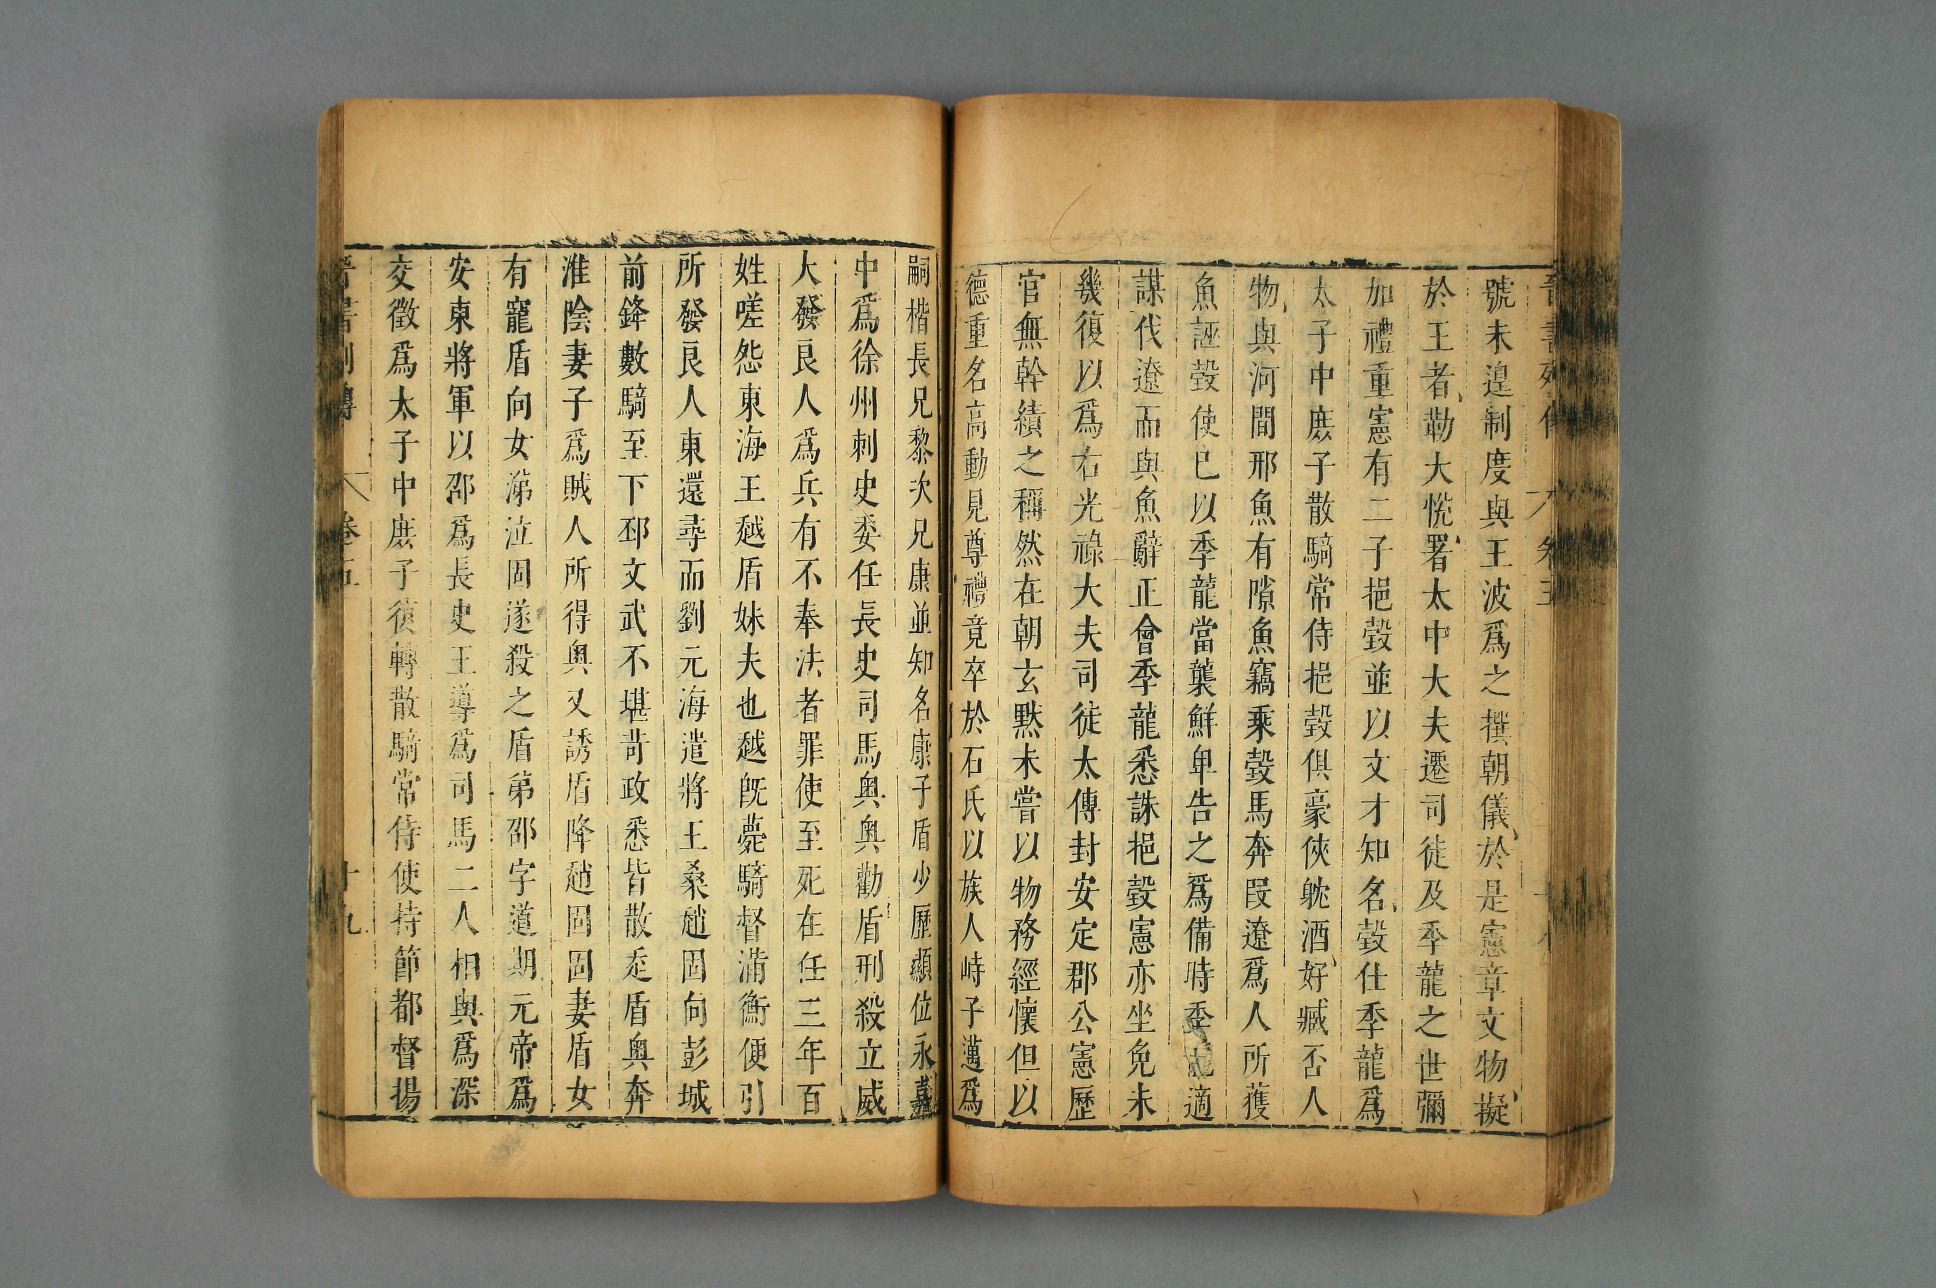 號未遑制度與王波爲之撰朝儀於是憲章文物擬
於王者勒大悅署太中大夫遷司徒及季龍之世彌
加禮重憲有二子挹瑴並以文才知名瑴仕季龍爲
太子中庶子散騎常侍挹瑴俱豪俠躭酒好臧否人
物與河間邢魚有隙魚竊乘瑴馬奔段遼爲人所獲
魚誣瑴使已以季龍當襲鮮卑告之爲備時季龍適
謀伐遼而與魚辭正會季龍悉誅挹瑴憲亦坐免未
幾復以爲右光祿大夫司徒太傅封安定郡公憲歷
官無幹績之稱然在朝玄默未嘗以物務經懷但以
德重名高動見尊禮竟卒於石氏以族人峙子邁爲
嗣楷長兄黎次兄康並知名康子盾少歷顯位永嘉
中爲徐州刺史委任長史司馬奧奧勸盾刑殺立威
大發良人爲兵有不奉法者罪使至死在任三年百
姓嗟怨東海王越盾妹夫也越旣薨騎督滿衡便引
所發良人東還尋而劉元海遣將王桑趙固向彭城
前鋒數騎至下邳文武不堪苛政悉皆散走盾奧奔
淮陰妻子爲賊人所得奧又誘盾降趙固固妻盾女
有寵盾向女涕泣固遂殺之盾弟邵字道期元帝爲
安東將軍以邵爲長史王導爲司馬二人相與爲深
交徵爲太子中庶子復轉散騎常侍使持節都督揚
晉書列傳 卷五 十九